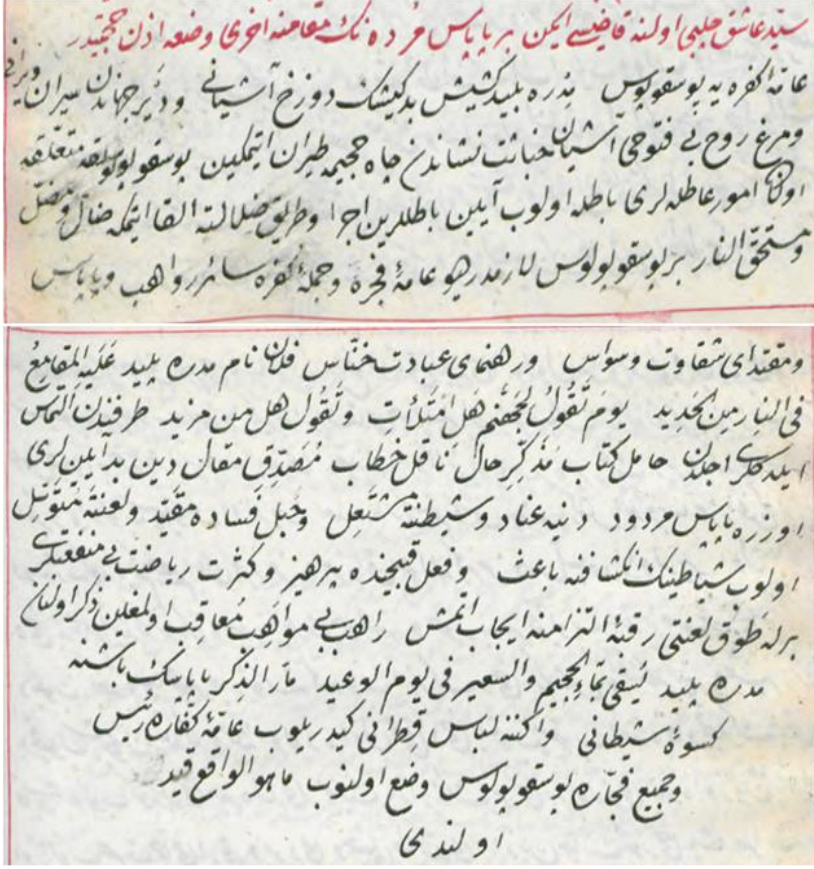 سيد عاشق چلبى اولنه قاضيسى ايكن بر پاپاس مرده نك مقامنه اخرى وضعه اذن حجتيدر
عامۀ كفره يه پوسقوپوس مدره پليد كشيش بدكيشك دوزخ آشيانى و دير جهاندن سيران ويرانى
ومرغ روح بى فتوحى آشيان خباثت نشاندن چاه جحيمه طيران ايتمكين پوسقوپولوسلغه متعلقه
اولان امور عاطله لرى باطله اولوب آيين باطللرين اجرا وطريق ضلالته القا ايتمكه ضال ومضل
ومستحق النار بر پوسقوپولوس لازمدر ديو عامۀ فجره وجملۀ كفره سائر رواهب وپاپاس
ومقتداى شقاوت وسواس ورهنماى عبادت خناس فلان نام مدره پليد عليه المقامع
فى النار من الحديد يوم تقول لجهنم هل امتلأت وتقول هل من مزيد طرفندن التماس
ايلدكلرى اجلدن حامل كتاب مذكر حال ناقل خطاب مصدق مقال دين بد آيينلرى
اوزره پاپاس مردود دنيه عناد وشيطنته مشتعل وحبل فساده مقيد ولعنته متوسل
اولوب شياطينك انكشافنه باعث وفعل قبيحنده پرهيز وكثرت رياضت بى منفعتلرى
برله طوق لعنتى رقبۀ التزامنه ايجاب اتمش راهب بى مواهب معاقب اولمغين ذكر اولنان
مدره پليد يسقى بماء الجحيم والسعير فى يوم الوعيد مار الذكر پاپاسك باشنه
كسوۀ شيطانى واكننه لباس قطرانى كيدريلوب عامۀ كفاره رئيس
وجميع فجاره پوسقوپولوس وضع اولنوب ما هو الواقع قيد
اولندى